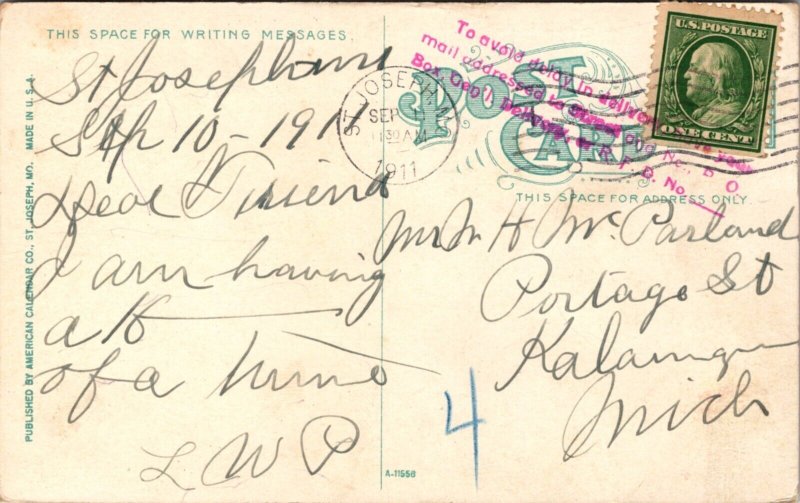 THIS SPACE FOR WRITING MESSAGES
St Joseph
Sep 10-1911
Dear Friend
I am having
a
of a time
L W P
PUBLISHED BY AMERICAN CALENDAR CO., ST. JOSEPH, MO. MADE IN U.S.A.
POST CARD
ST. JOSEPH
SEP
1130 AM
1911
To avoid delay in delivery
mail addressed to Street and No., P O
Box, Gen'l Delivery or R. F. D. No.
U.S. POSTAGE
ONE CENT
THIS SPACE FOR ADDRESS ONLY
H McParland
Portage St
Mich
4
A-11556